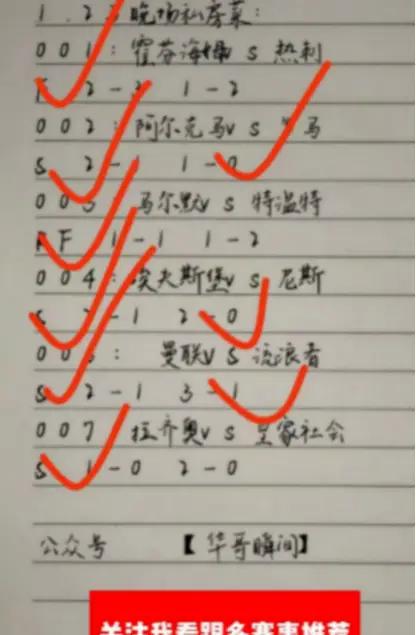 1.23晚场私房菜:
001: 霍芬海姆vs热刺
2- 1-2
002: 阿尔克马vs 马
S 2-1 1-0
003 马尔默vs特温特
F 1-1 1-2
004: 埃夫斯堡vs尼斯
S 2-1 2-0
00 : 曼联vs流浪者
S 2-1 3-1
007 拉齐奥vs皇家社会
S 1-0 2-0
公众号 【华哥瞬间】
关注我看跟多赛事推荐